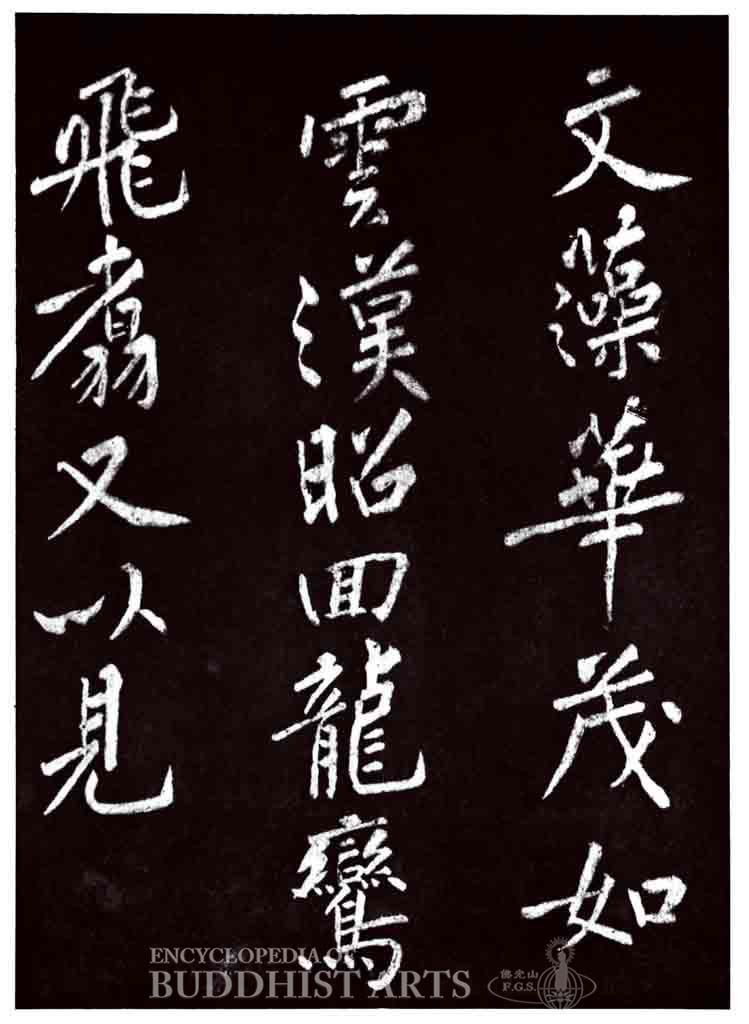 文藻華茂如
雲漢昭回龍鸞
飛翥又以見
ENCYCLOPEDIA OF
BUDDHIST ARTS
佛光山
F.G.S.